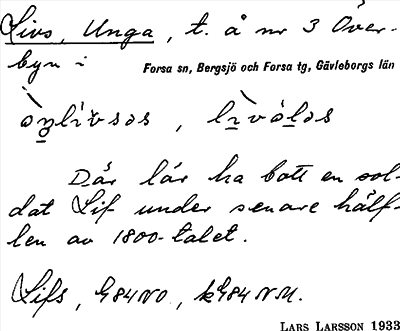 Livs, Unga, t. å nr 3 Över-
byn i Forsa sn, Bergsjö och Forsa tg, Gävleborgs län
Där lär ha bott en sol-
dat Lif under senare hälf-
ten av 1800-talet.
Lifs, G84NO, kG84NM.
LARS LARSSON 1933